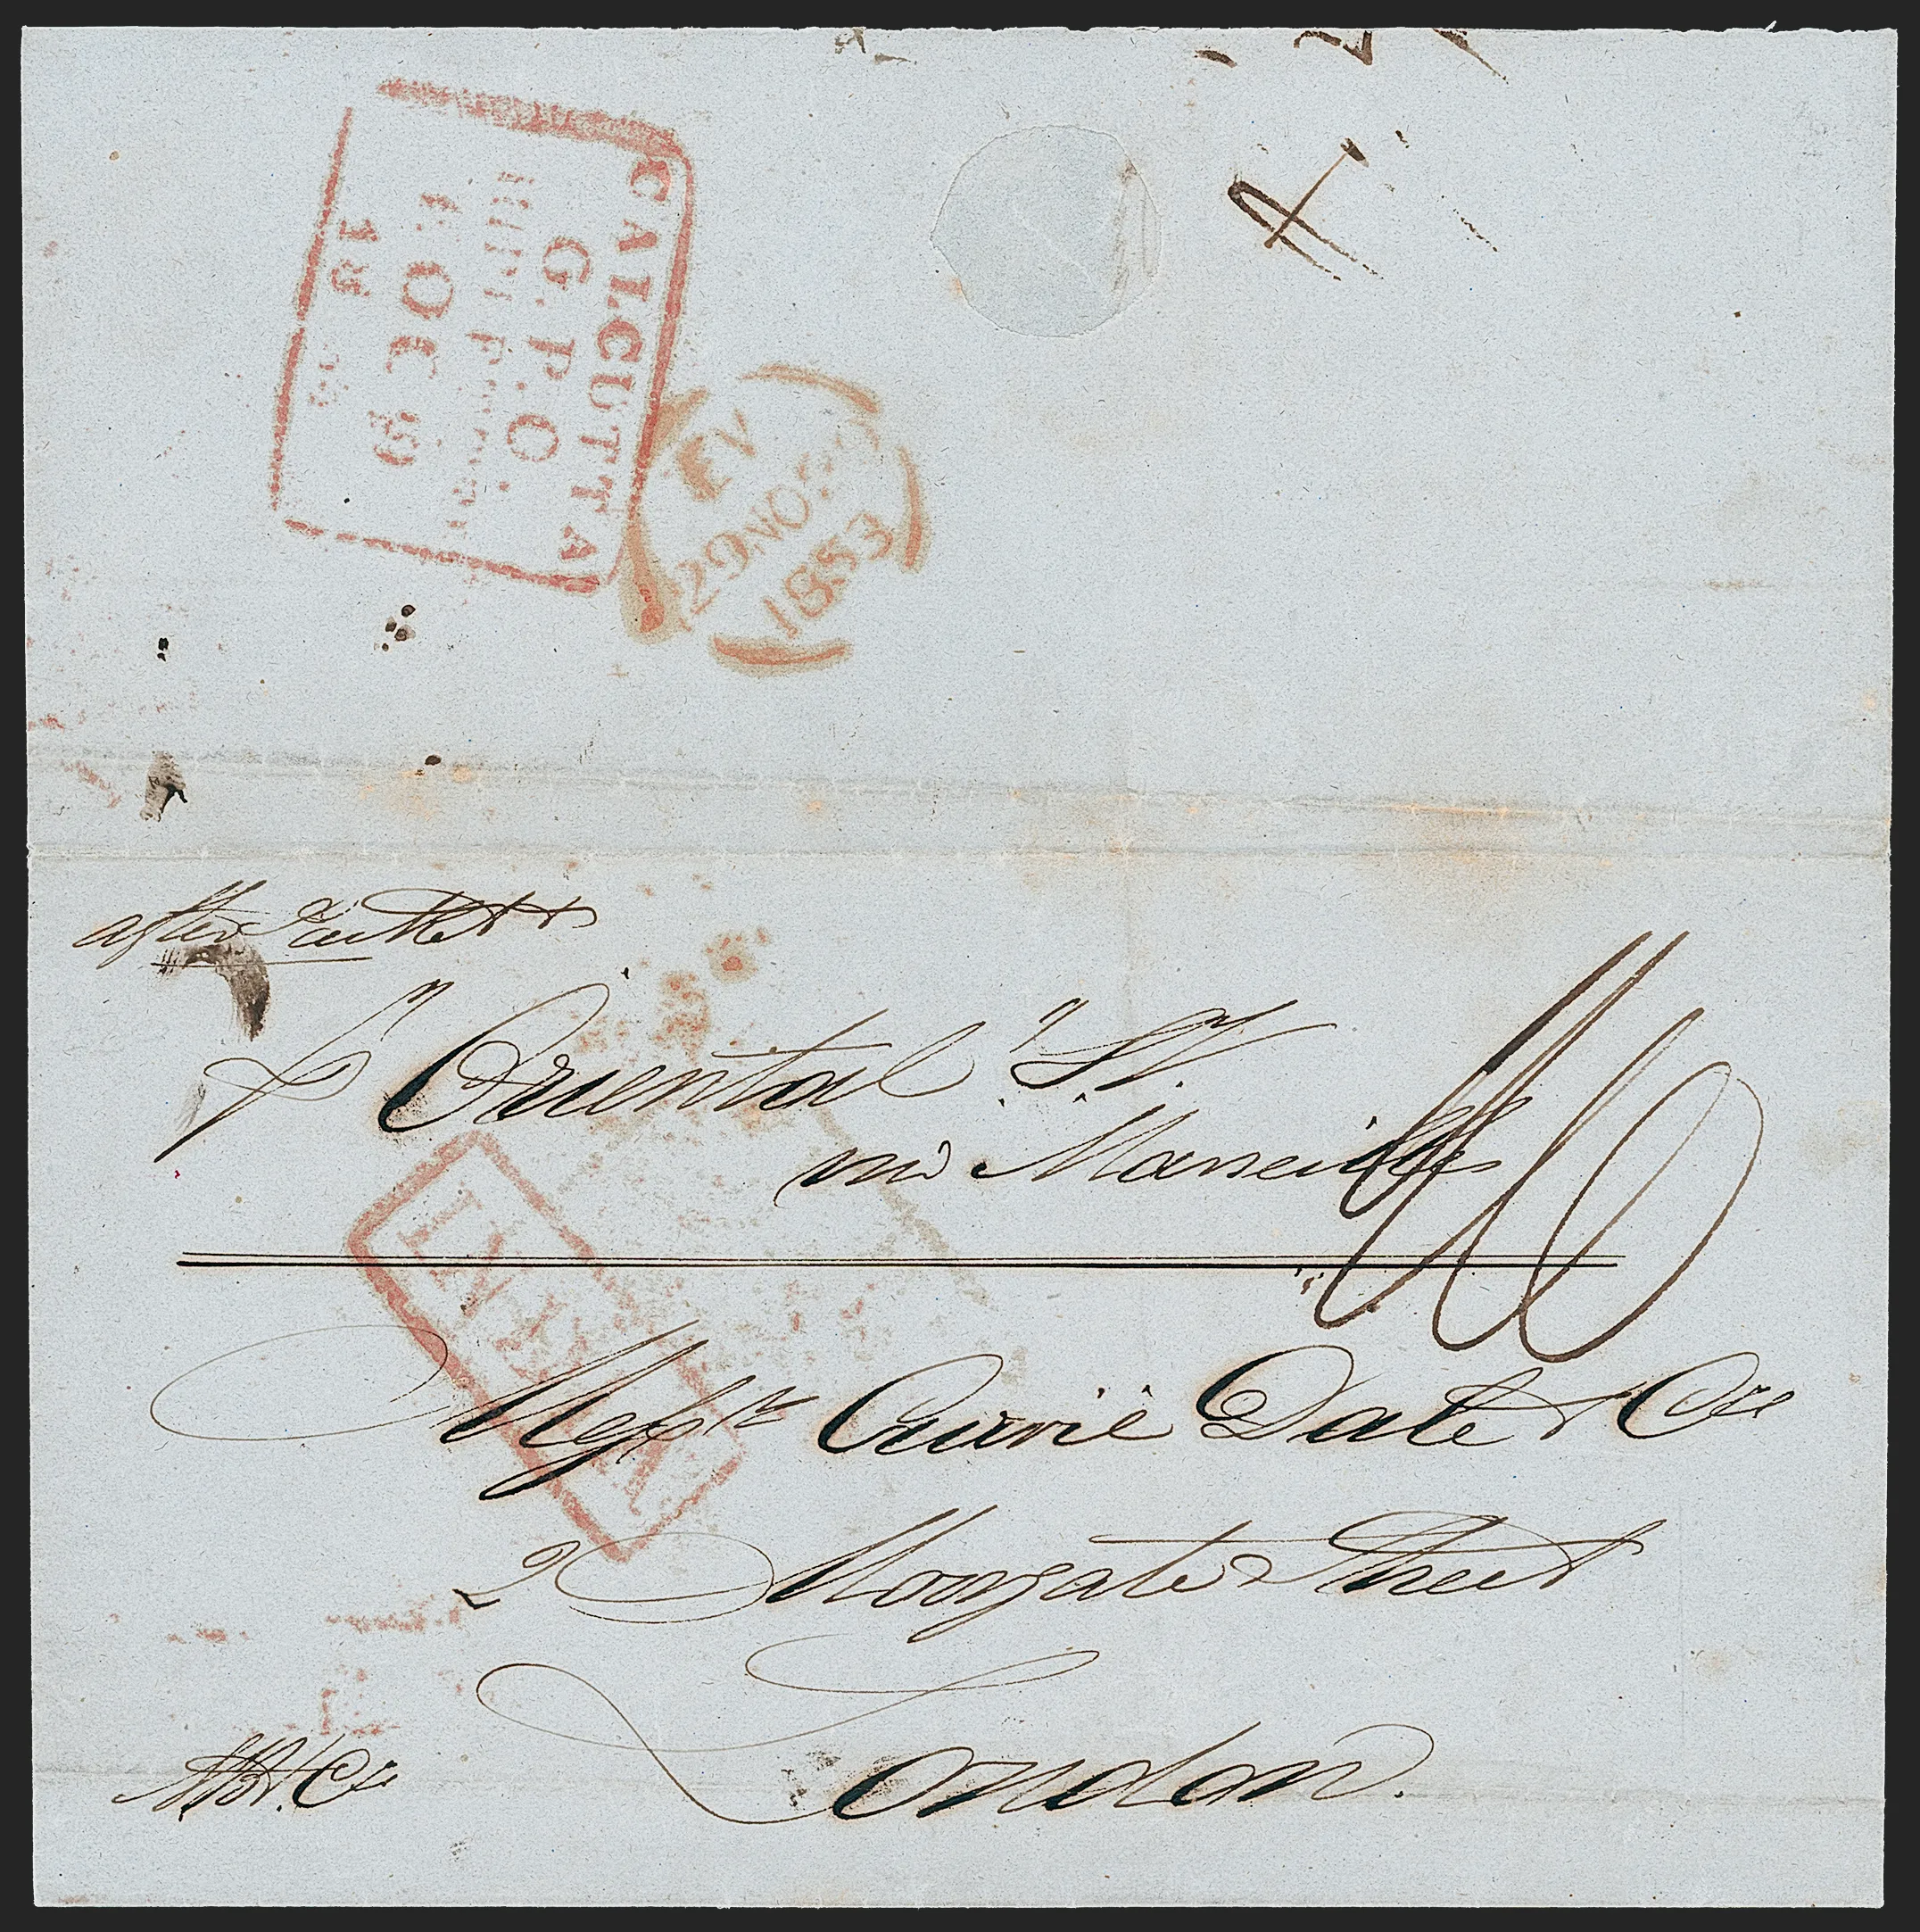 CALCUTTA
G.P.O
OC
18
EV
29 NO 29
1853
after Packet
pr Oriental S.V.
via Marseilles
INDIA
Messrs Currie Dale & Co
2 Moorgate Street
London.
& Co